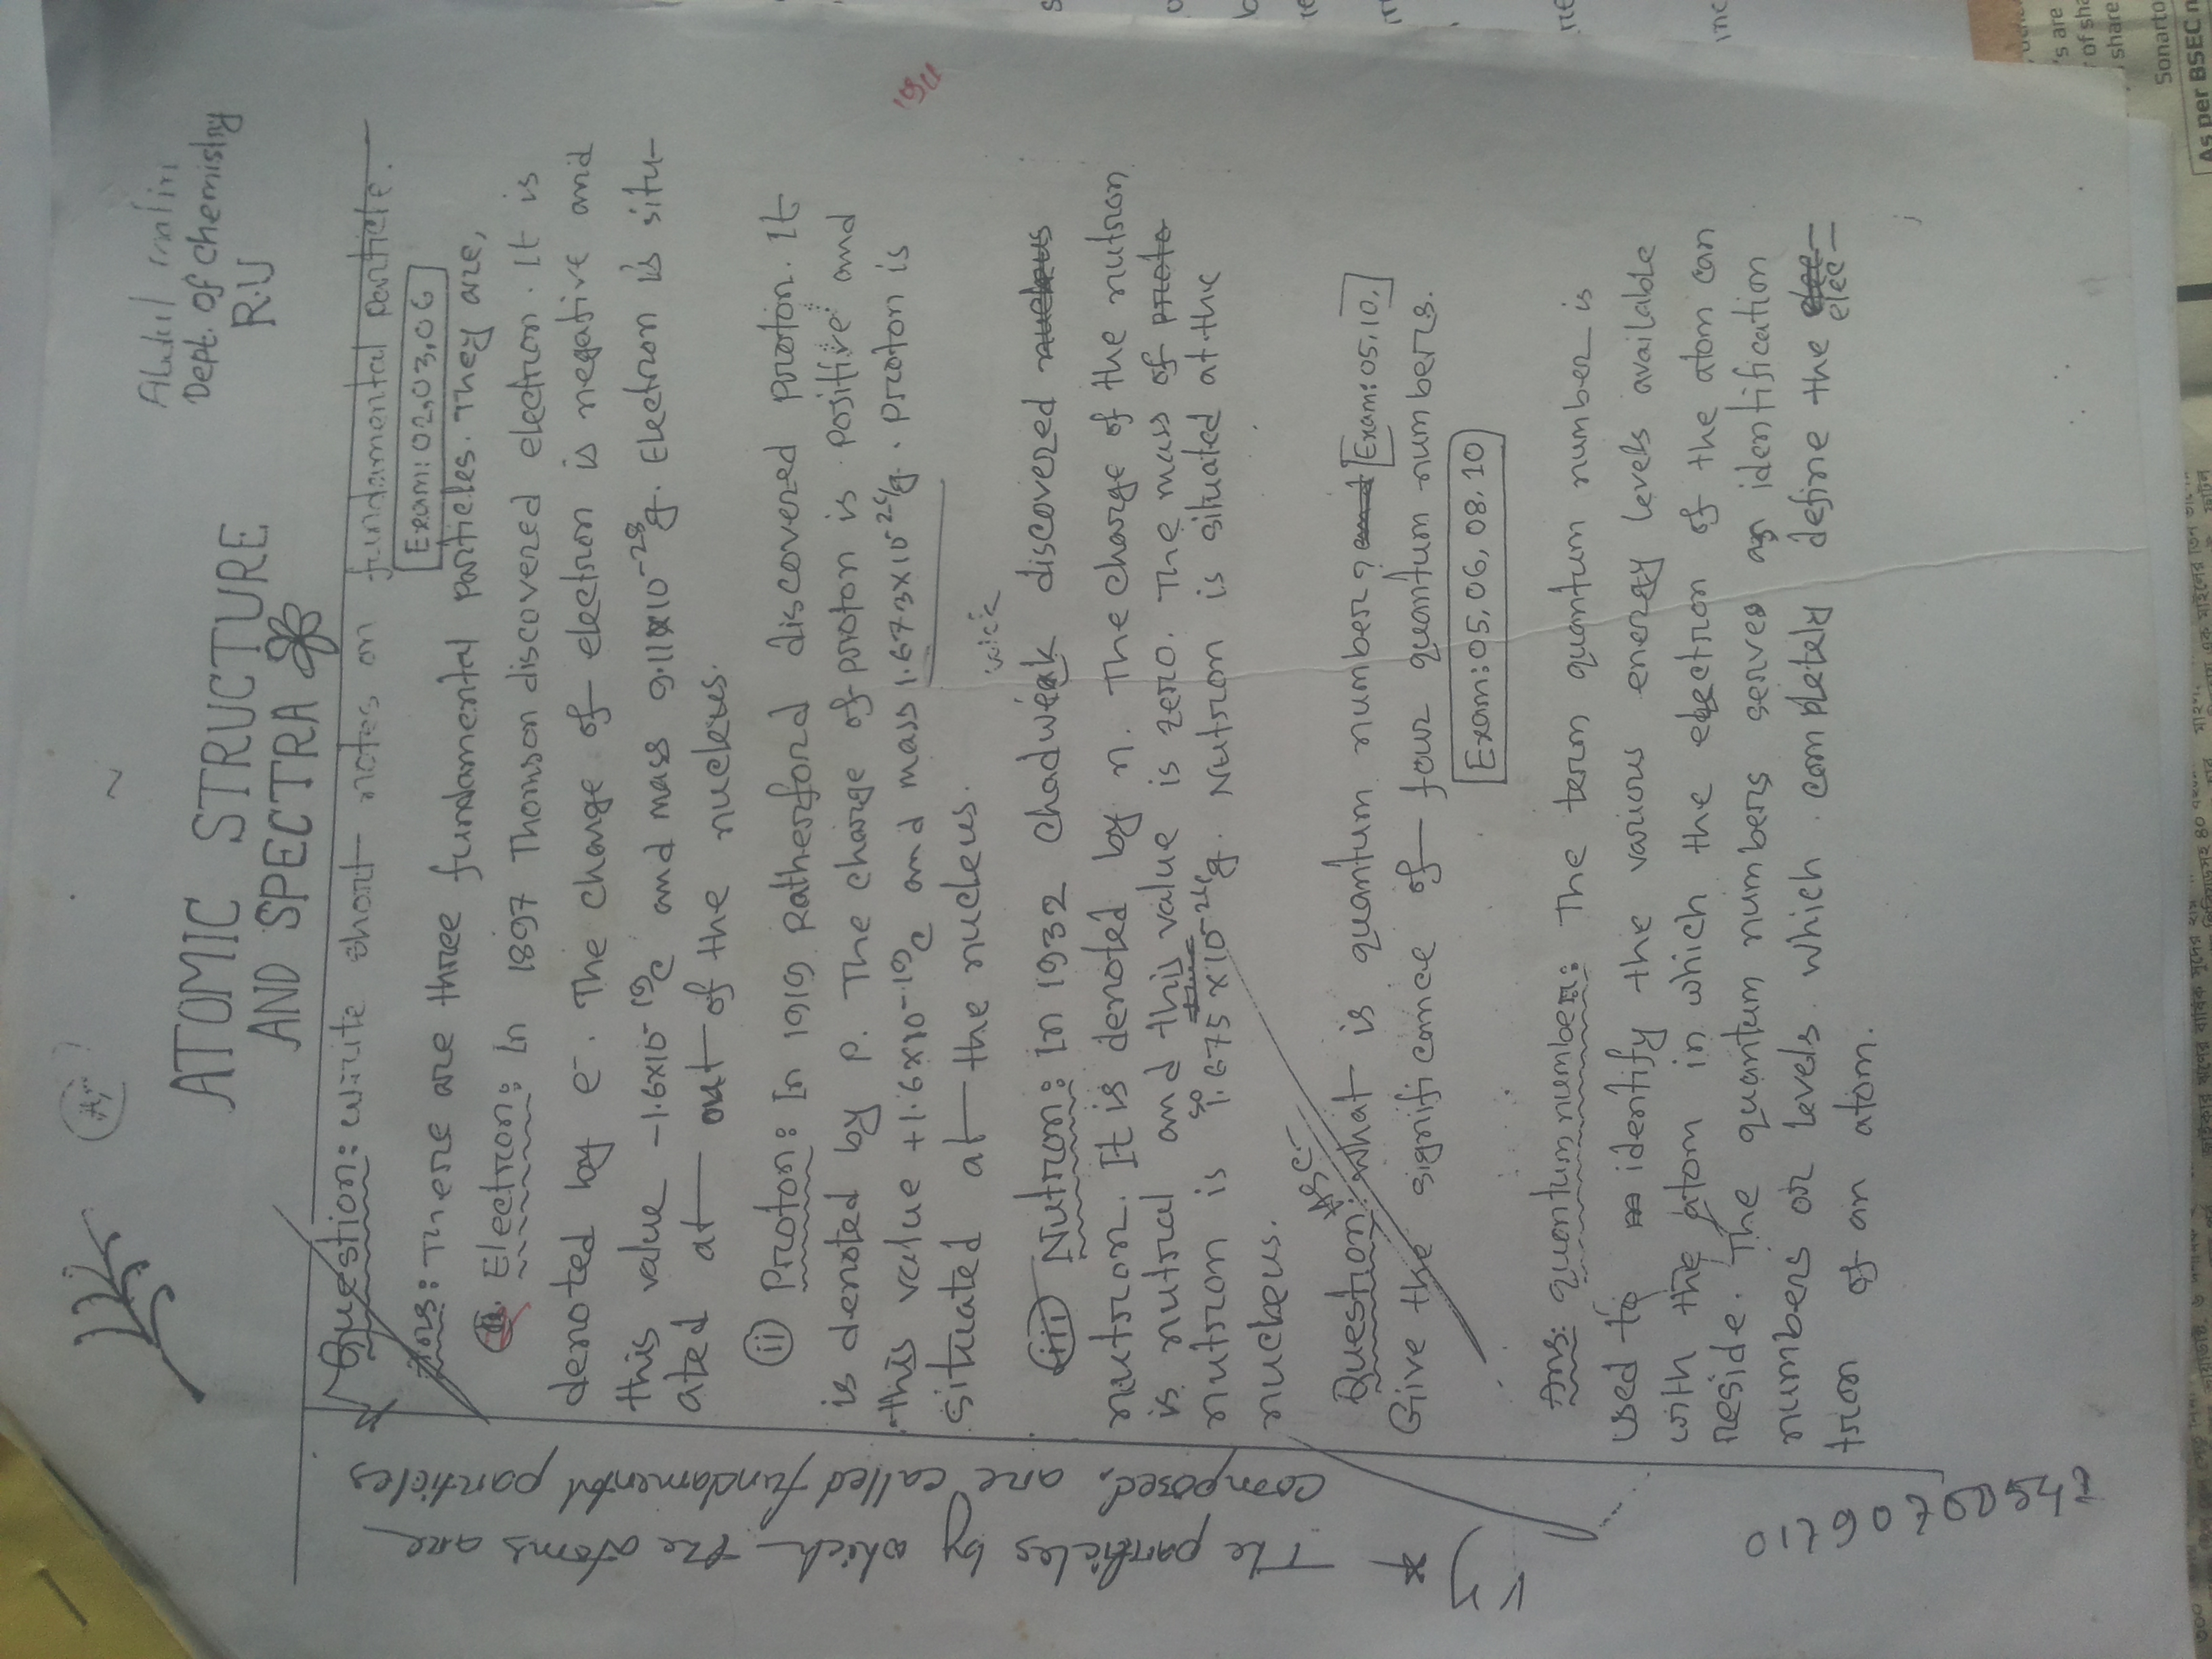 ATOMIC STRUCTURE
AND SPECTRA
Abdul
Dept. of Chemistry
R.U
Question: Write short notes on fundamental particle.
Exam: 02,03,06
Ans: There are three fundamental particles. They are,
i. Electron: In 1897 Thomson discovered electron. It is
denoted by e-. The charge of electron is negative and
this value -1.6x10-19c and mass 9.11x10-28g. Electron is situ-
ated at out of the nucleus.
ii Proton: In 1919 Ratherford discovered proton. It
is denoted by p. The charge of proton is positive and
this value +1.6x10-19c and mass 1.673x10-24g. Proton is
situated at the nucleus.
wick
iii Nutron: In 1932 Chadweak discovered nucleus
nutron. It is denoted by n. The charge of the nutron
is nutral and this value is zero. The mass of proto
nutron is 1.675x10-24g. Nutron is situated at the
nucleus.
HSC-
Question: What is quantum number? and [Exam: 05,10,]
Give the significance of four quantum numbers.
Exam: 05, 06, 08, 10
Ans: quantum number: The term quantum number is
used to identify the various energy levels available
with the atom in which the electron of the atom can
reside. The quantum numbers serves as identification
numbers or levels which completely define the elec-
tron of an atom.
* The particles by which the atoms are
composed, are called fundamental particles
As per BSEC
Sonarto
's are
of sha
share